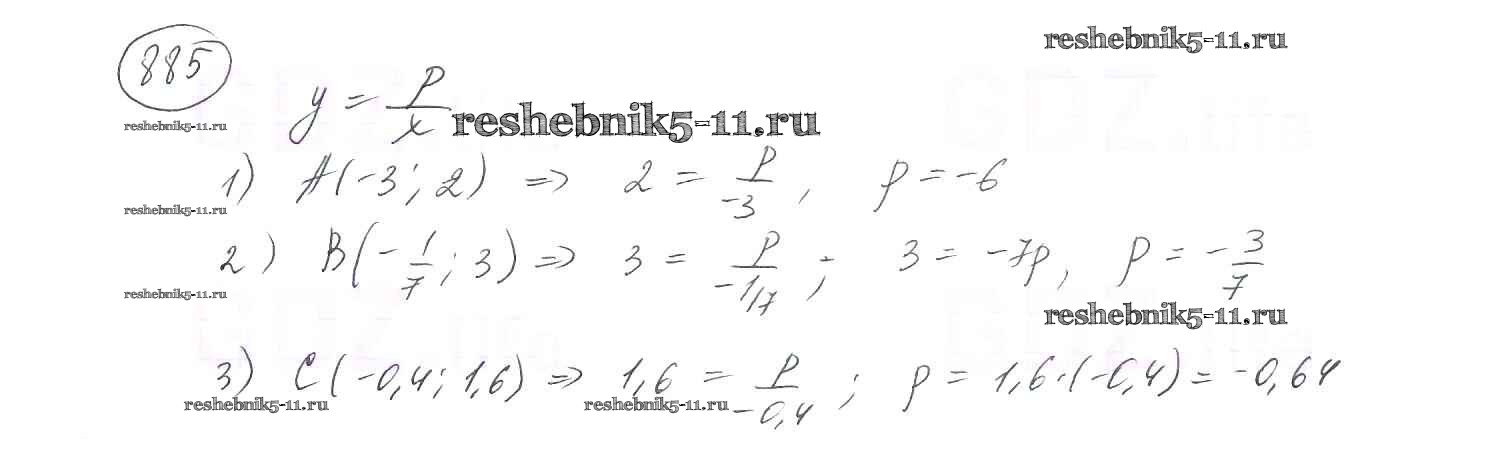 885
reshebnik5-11.ru
reshebnik5-11.ru
y = p/x reshebnik5-11.ru
1) A(-3; 2) => 2 = p/-3, p = -6
reshebnik5-11.ru
2) B(-1/7; 3) => 3 = p/-1/7; 3 = -7p, p = -3/7
reshebnik5-11.ru
reshebnik5-11.ru
3) C(-0,4; 1,6) => 1,6 = p/-0,4; p = 1,6·(-0,4) = -0,64
reshebnik5-11.ru
reshebnik5-11.ru